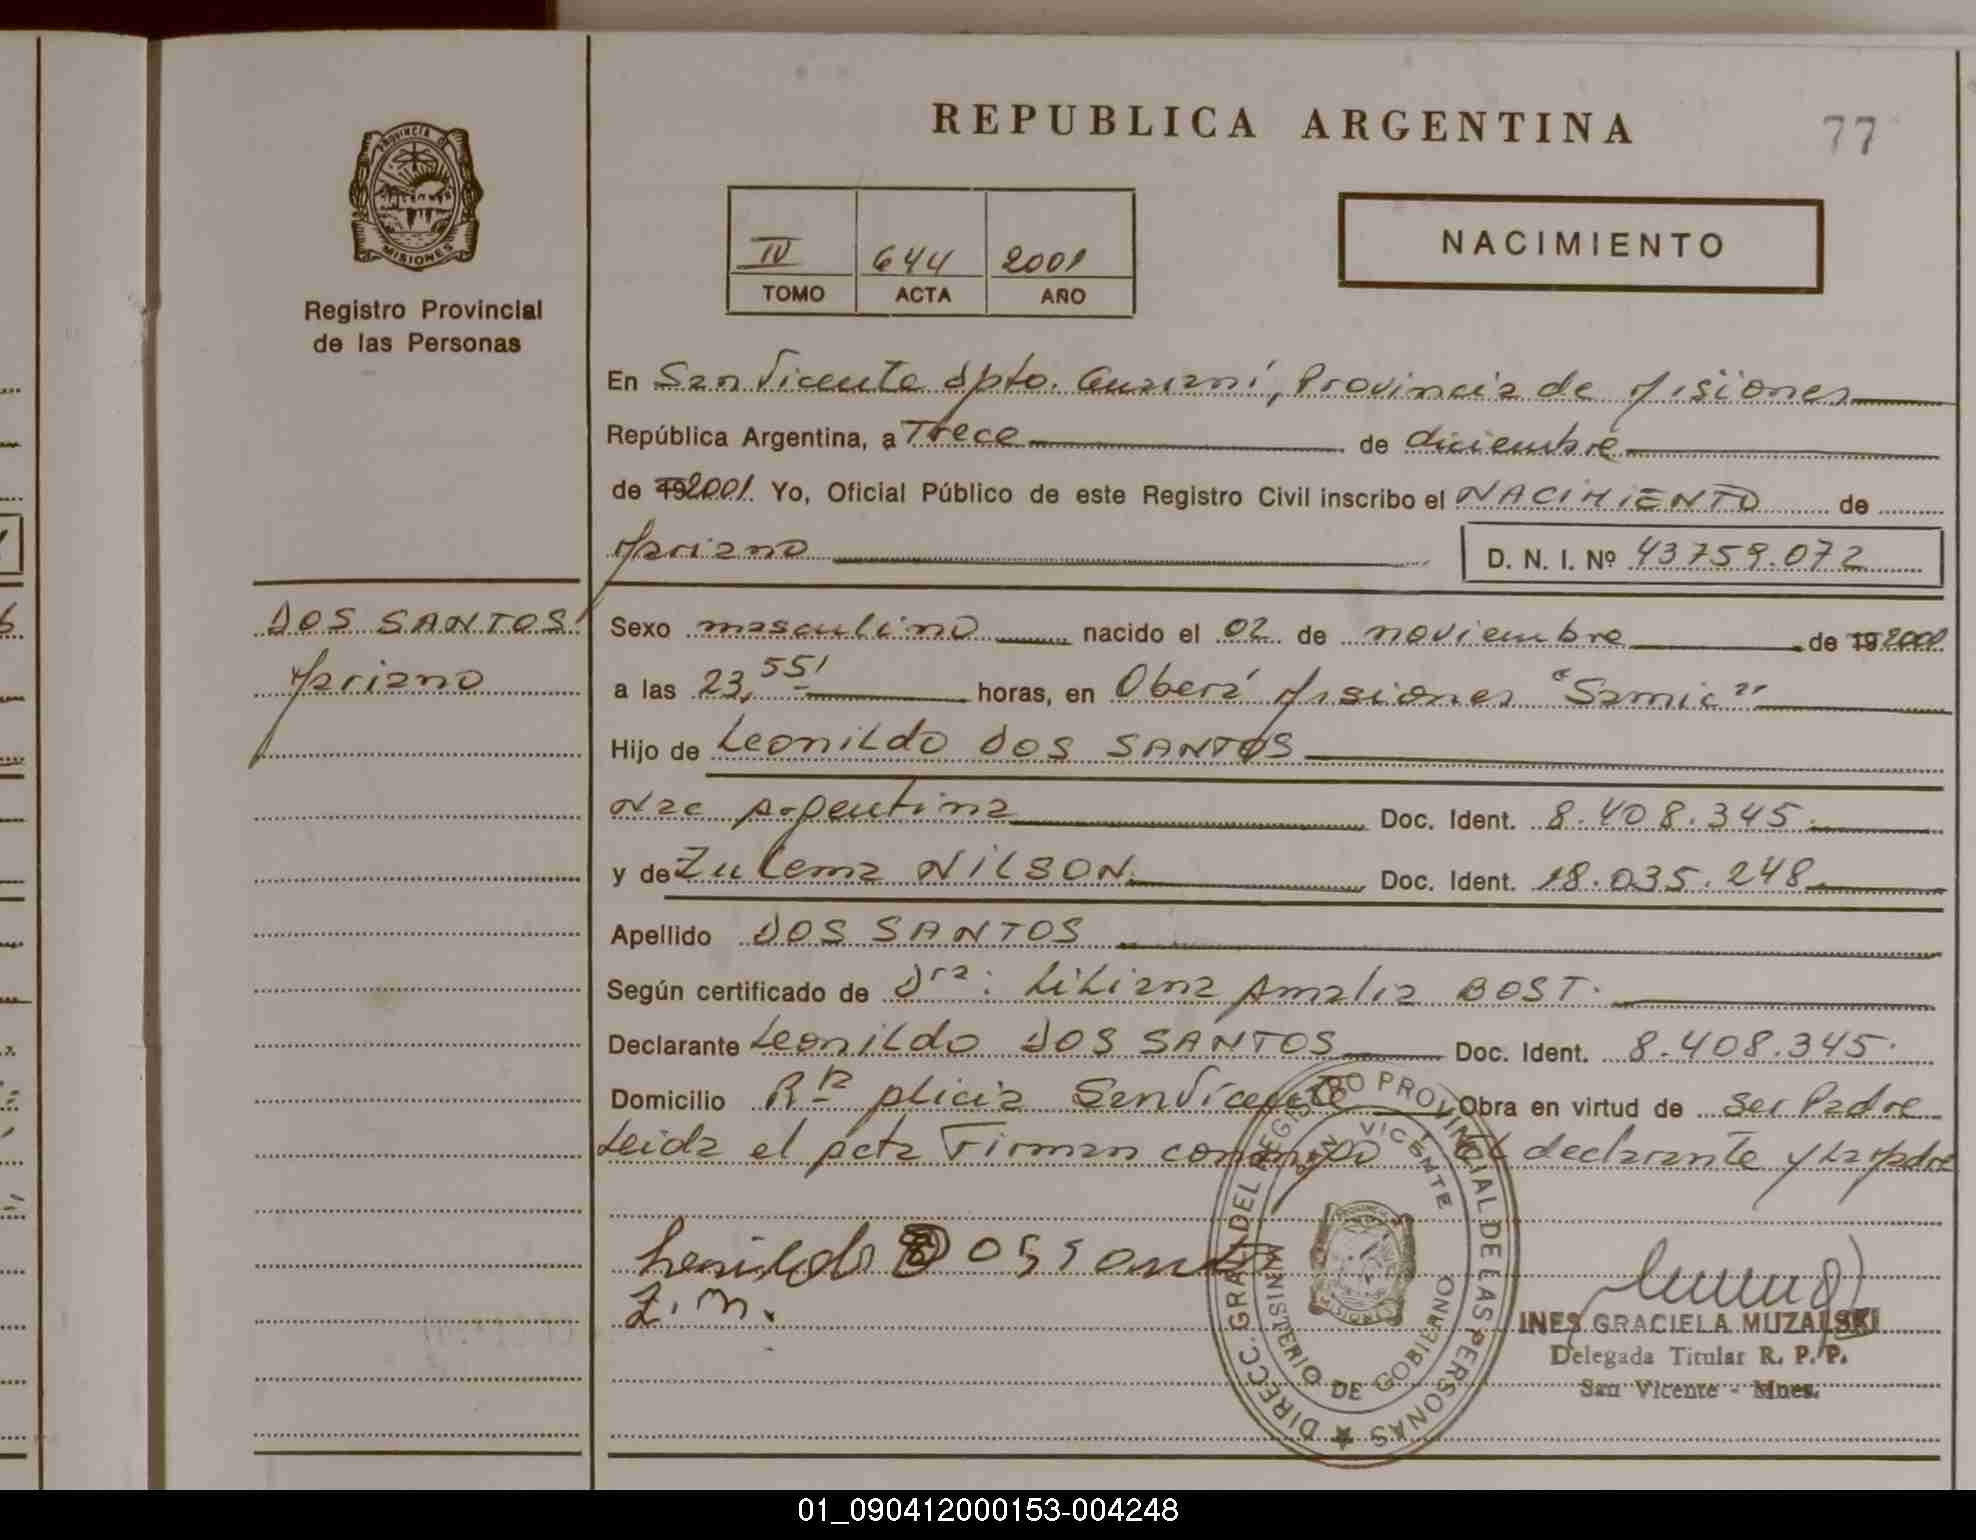 REPUBLICA ARGENTINA
77
PROVINCIA D
MISIONES
Registro Provincial
de las Personas
IV 644 2001
TOMO ACTA AÑO
NACIMIENTO
En San Vicente dpto. Guaraní, Provincia de Misiones
República Argentina, a Trece de diciembre
de 192001. Yo, Oficial Público de este Registro Civil inscribo el NACIMIENTO de
Mariano D. N. I. Nº 43759.072
DOS SANTOS
Mariano
Sexo masculino nacido el 02 de noviembre de 19 2001
a las 23,55' horas, en Oberá Misiones "Samic"
Hijo de Leonildo DOS SANTOS
Nac Argentina Doc. Ident. 8.408.345.
y de Zulema NILSON Doc. Ident. 18.035.248
Apellido DOS SANTOS
Según certificado de Dra: Liliana Amalia BOST.
Declarante Leonildo DOS SANTOS Doc. Ident. 8.408.345.
Domicilio San Vicente Obra en virtud de ser Padre
Leida el acta Firman conmigo El declarante y La Madre
Leonildo DOSSantos
Z. N.
INES GRACIELA MUZALSKI
Delegada Titular R. P. P.
San Vicente - Mnes.
DIRECC. GRAL DEL REGISTRO PROVINCIAL DE LAS PERSONAS
SAN VICENTE
MINISTERIO DE GOBIERNO
MISIONES
01_090412000153-004248